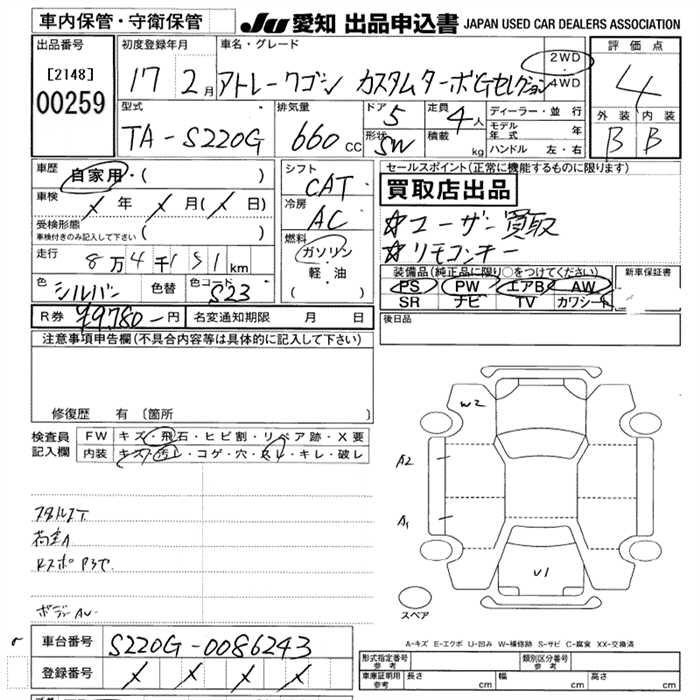 車内保管・守衛保管
JU 愛知 出品申込書 JAPAN USED CAR DEALERS ASSOCIATION
出品番号
[2148]
00259
初度登録年月
17 2月
車名・グレード
アトレーワゴン カスタムターボGセレクション
2WD
4WD
評価点
4
外装 内装
B B
型式
TA-S220G
排気量
660cc
ドア 5
形状 SW
定員 4人
積載 kg
ディーラー・並行
モデル年式 年
ハンドル 左・右
車歴
自家用・( )
車検
年 月( 日)
受検形態
車検付きのみ記入して下さい ( )
走行
8万4千151km
色 シルバー 色替 色コード S23
シフト
CAT
冷房
AC
燃料
ガソリン
軽・油
( )
セールスポイント(正常に機能するものに限ります)
買取店出品
☆ユーザー買取
☆リモコンキー
装備品(純正品に限り○をつけてください)
PS PW エアB AW
SR ナビ TV カワシート
新車保証書
R券 ¥9780-円 名変通知期限 月 日
後日品
注意事項申告欄(不具合内容等は具体的に記入して下さい)
修復歴 有 〔箇所 〕
検査員記入欄
FW キズ・飛石・ヒビ割・リペア跡・X要
内装 キズ・汚レ・コゲ・穴・スレ・キレ・破レ
W2
A2
A1
U1
スペア
A-キズ E-エクボ U-凹み W-補修跡 S-サビ C-腐食 XX-交換済
車台番号 S220G-0086243
登録番号
形式指定番号 参考
類別区分番号 参考
車庫証明用 参考 長さ cm 幅 cm 高さ cm